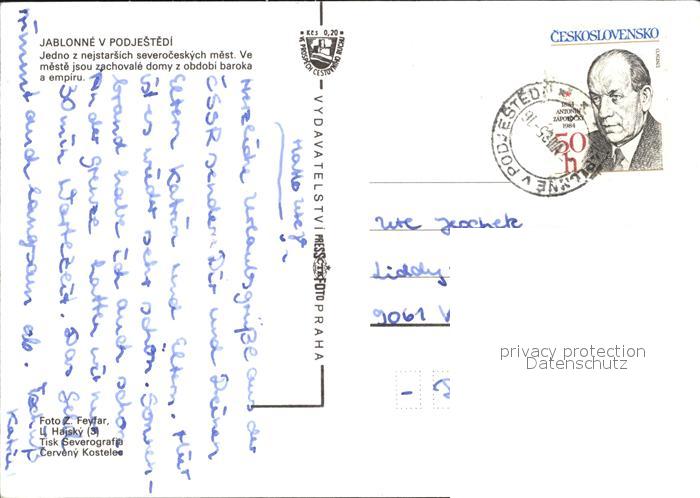 JABLONNÉ V PODJEŠTĚDÍ
Jedno z nejstarších severočeských měst. Ve
městě jsou zachovalé domy z období baroka
a empíru.
Kčs 0,20
VE PROSPĚCH CESTOVNÍHO RUCHU
VYDAVATELSTVÍ PRESSFOTO PRAHA
ČESKOSLOVENSKO
1884
ANTONÍN
ZÁPOTOCKÝ
1984
50
h
JABLONNÉ V PODJEŠTĚDÍ
Hallo Ute!
Herzliche Urlaubsgrüße aus der
ČSSR senden Dir und Deinen
Eltern Katrin und Eltern. Hier
ist es wieder sehr schön. Sonnen-
brand habe ich auch schon.
An der Grenze hatten wir nur
30 min Wartezeit. Das Geld
nimmt auch langsam ab. Tschüß
Katrin
Ute Jeschek
Liddy
9061
privacy protection
Datenschutz
Foto Z. Feyfar,
L. Hajský (3)
Tisk Severografia
Červený Kostelec